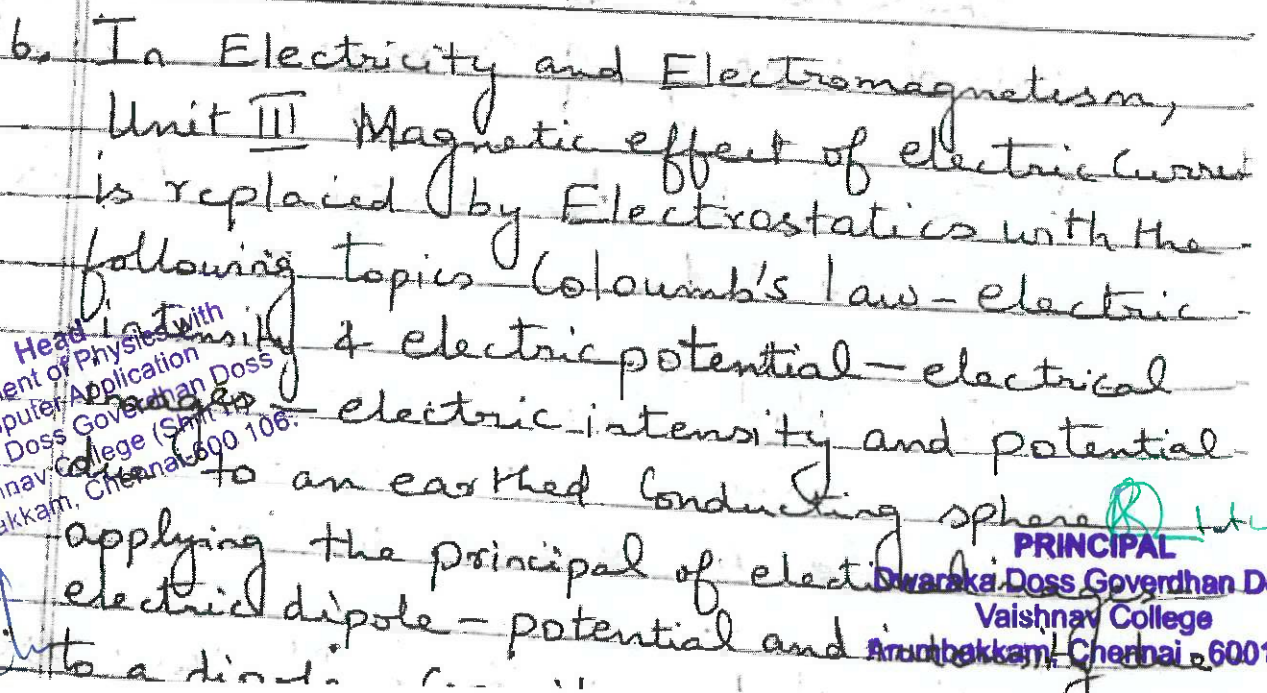 6. In Electricity and Electromagnetism,
Unit III Magnetic effect of electric Current
is replaced by Electrostatics with the
following topics Coloumb's law - electric
intensity & electric potential - electrical
images - electric intensity and potential
due to an earthed Conducting sphere
applying the principal of electrical images
electric dipole - potential and intensity due
to a dipole
Head
ent of Physics with
puter Application
Doss Goverdhan Doss
nav College (Shift
akkam, Chennai-600 106.
PRINCIPAL
Dwaraka Doss Goverdhan D
Vaishnav College
Arumbakkam, Chennai - 6001